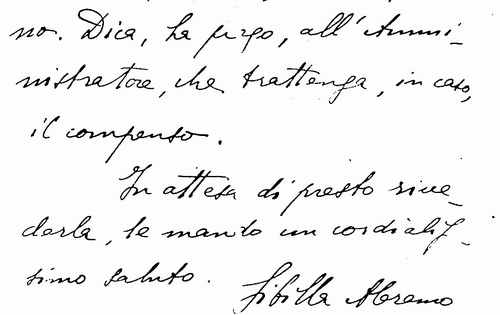 no. Dica, la prego, all'Ammi-
nistratore, che trattenga, in caso,
il compenso.
In attesa di presto rive-
derla, le mando un cordialis-
simo saluto. Sibilla Aleramo